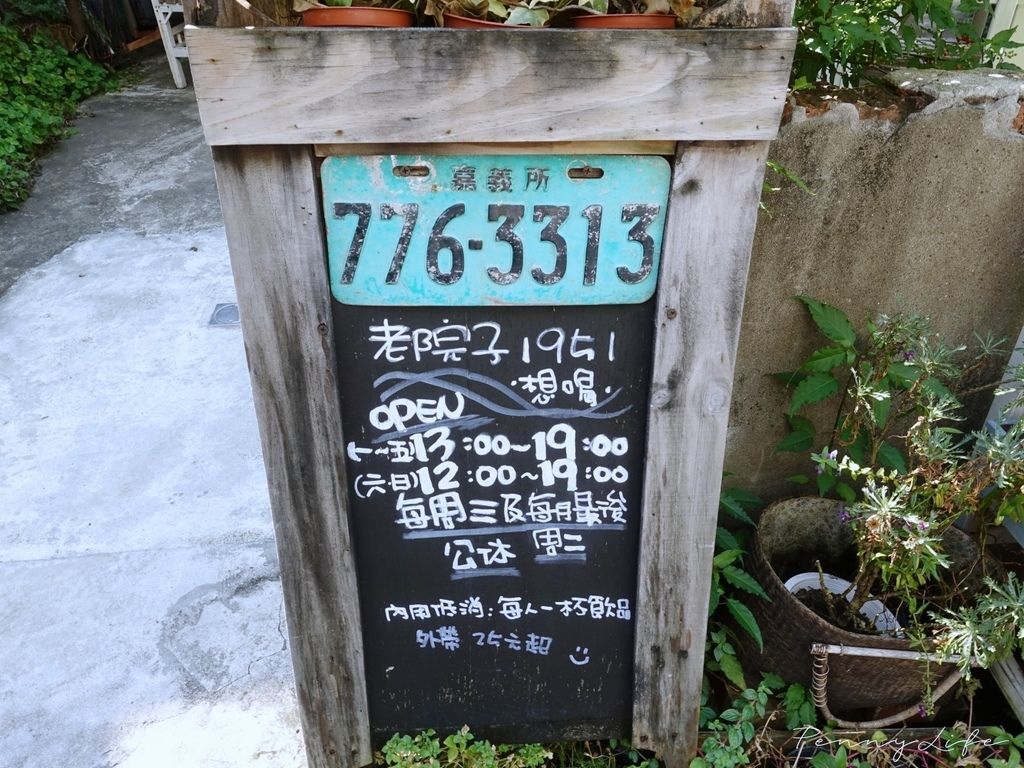 嘉義所
776-3313
老院子1951
·想喝·
OPEN
一~五13:00~19:00
(六.日)12:00~19:00
每周三及每月最後
周二
公休
內用低消:每人一杯飲品
外帶 25元起
PennyLife